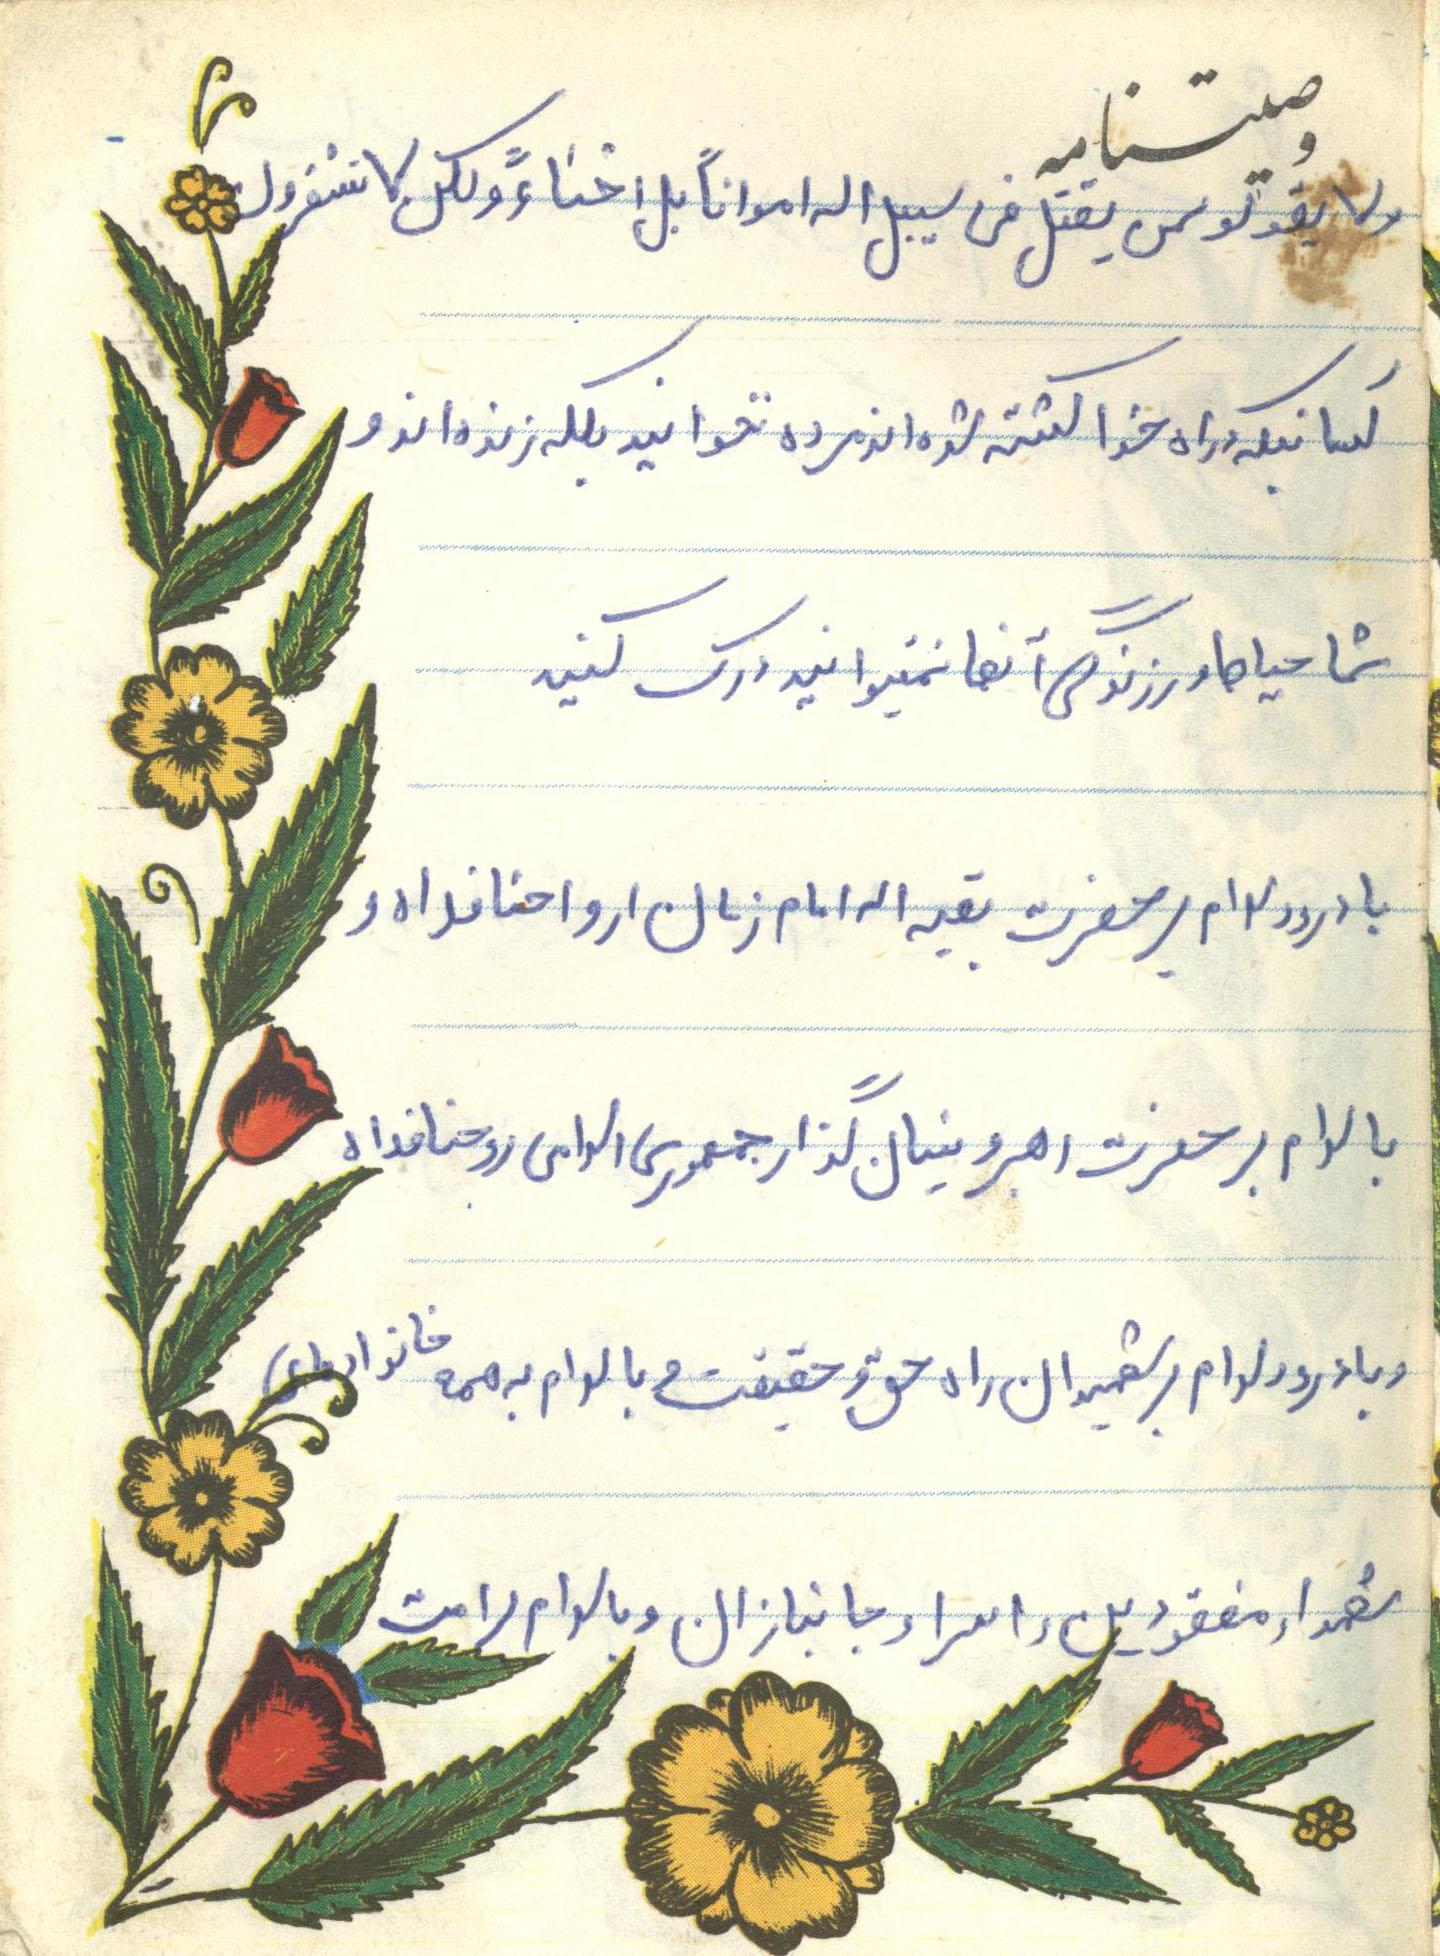 وصیتنامه
ولا یقولو لمن یقتل فی سبیل اله امواتاً بل احیاءٌ ولکن لا تشعرون
کسانیکه در راه خدا کشته شده اند مرده نخوانید بلکه زنده اند و
شما حیاط و زندگی آنها نمیتوانید درک کنید
با درود و سلام بر حضرت بقیه اله امام زمان ارواحنا فداه و
با سلام بر حضرت رهبر و بنیان گذار جمهوری اسلامی روحنا فداه
و با درود و سلام بر شهیدان راه حق و حقیقت و با سلام به همه خانواده های
شهداء مفقودین و اسراء و جانبازان و با سلام بر امت